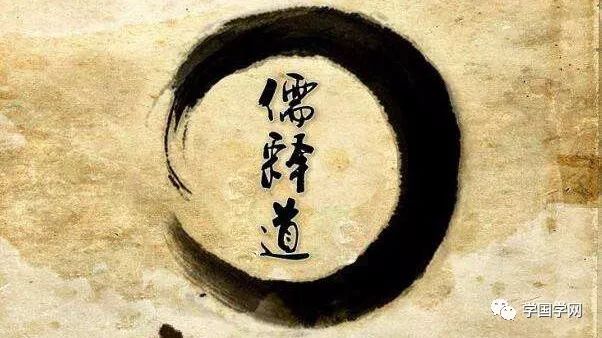 儒
释
道
学国学网